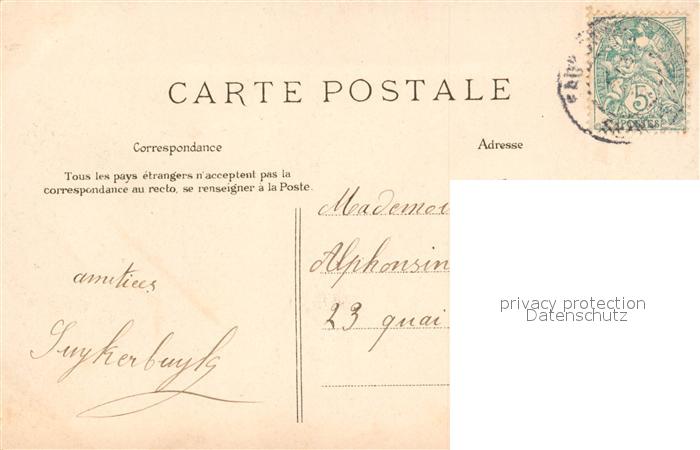 CARTE POSTALE
Correspondance
Adresse
Tous les pays étrangers n'acceptent pas la
correspondance au recto, se renseigner à la Poste.
Mademoi
Alphonsin
23 quai
amitiées
Suykerbuyk
5
privacy protection
Datenschutz